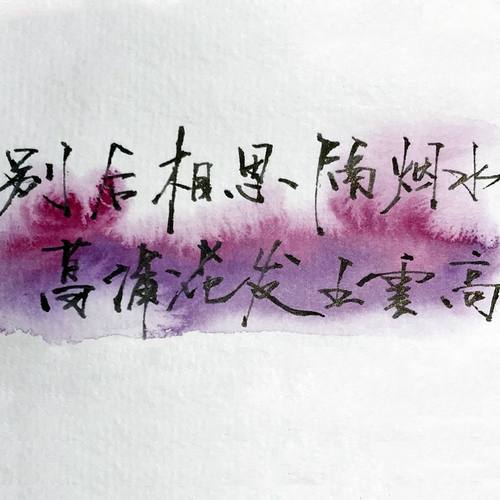 别后相思隔烟水
菖蒲花发五雲高